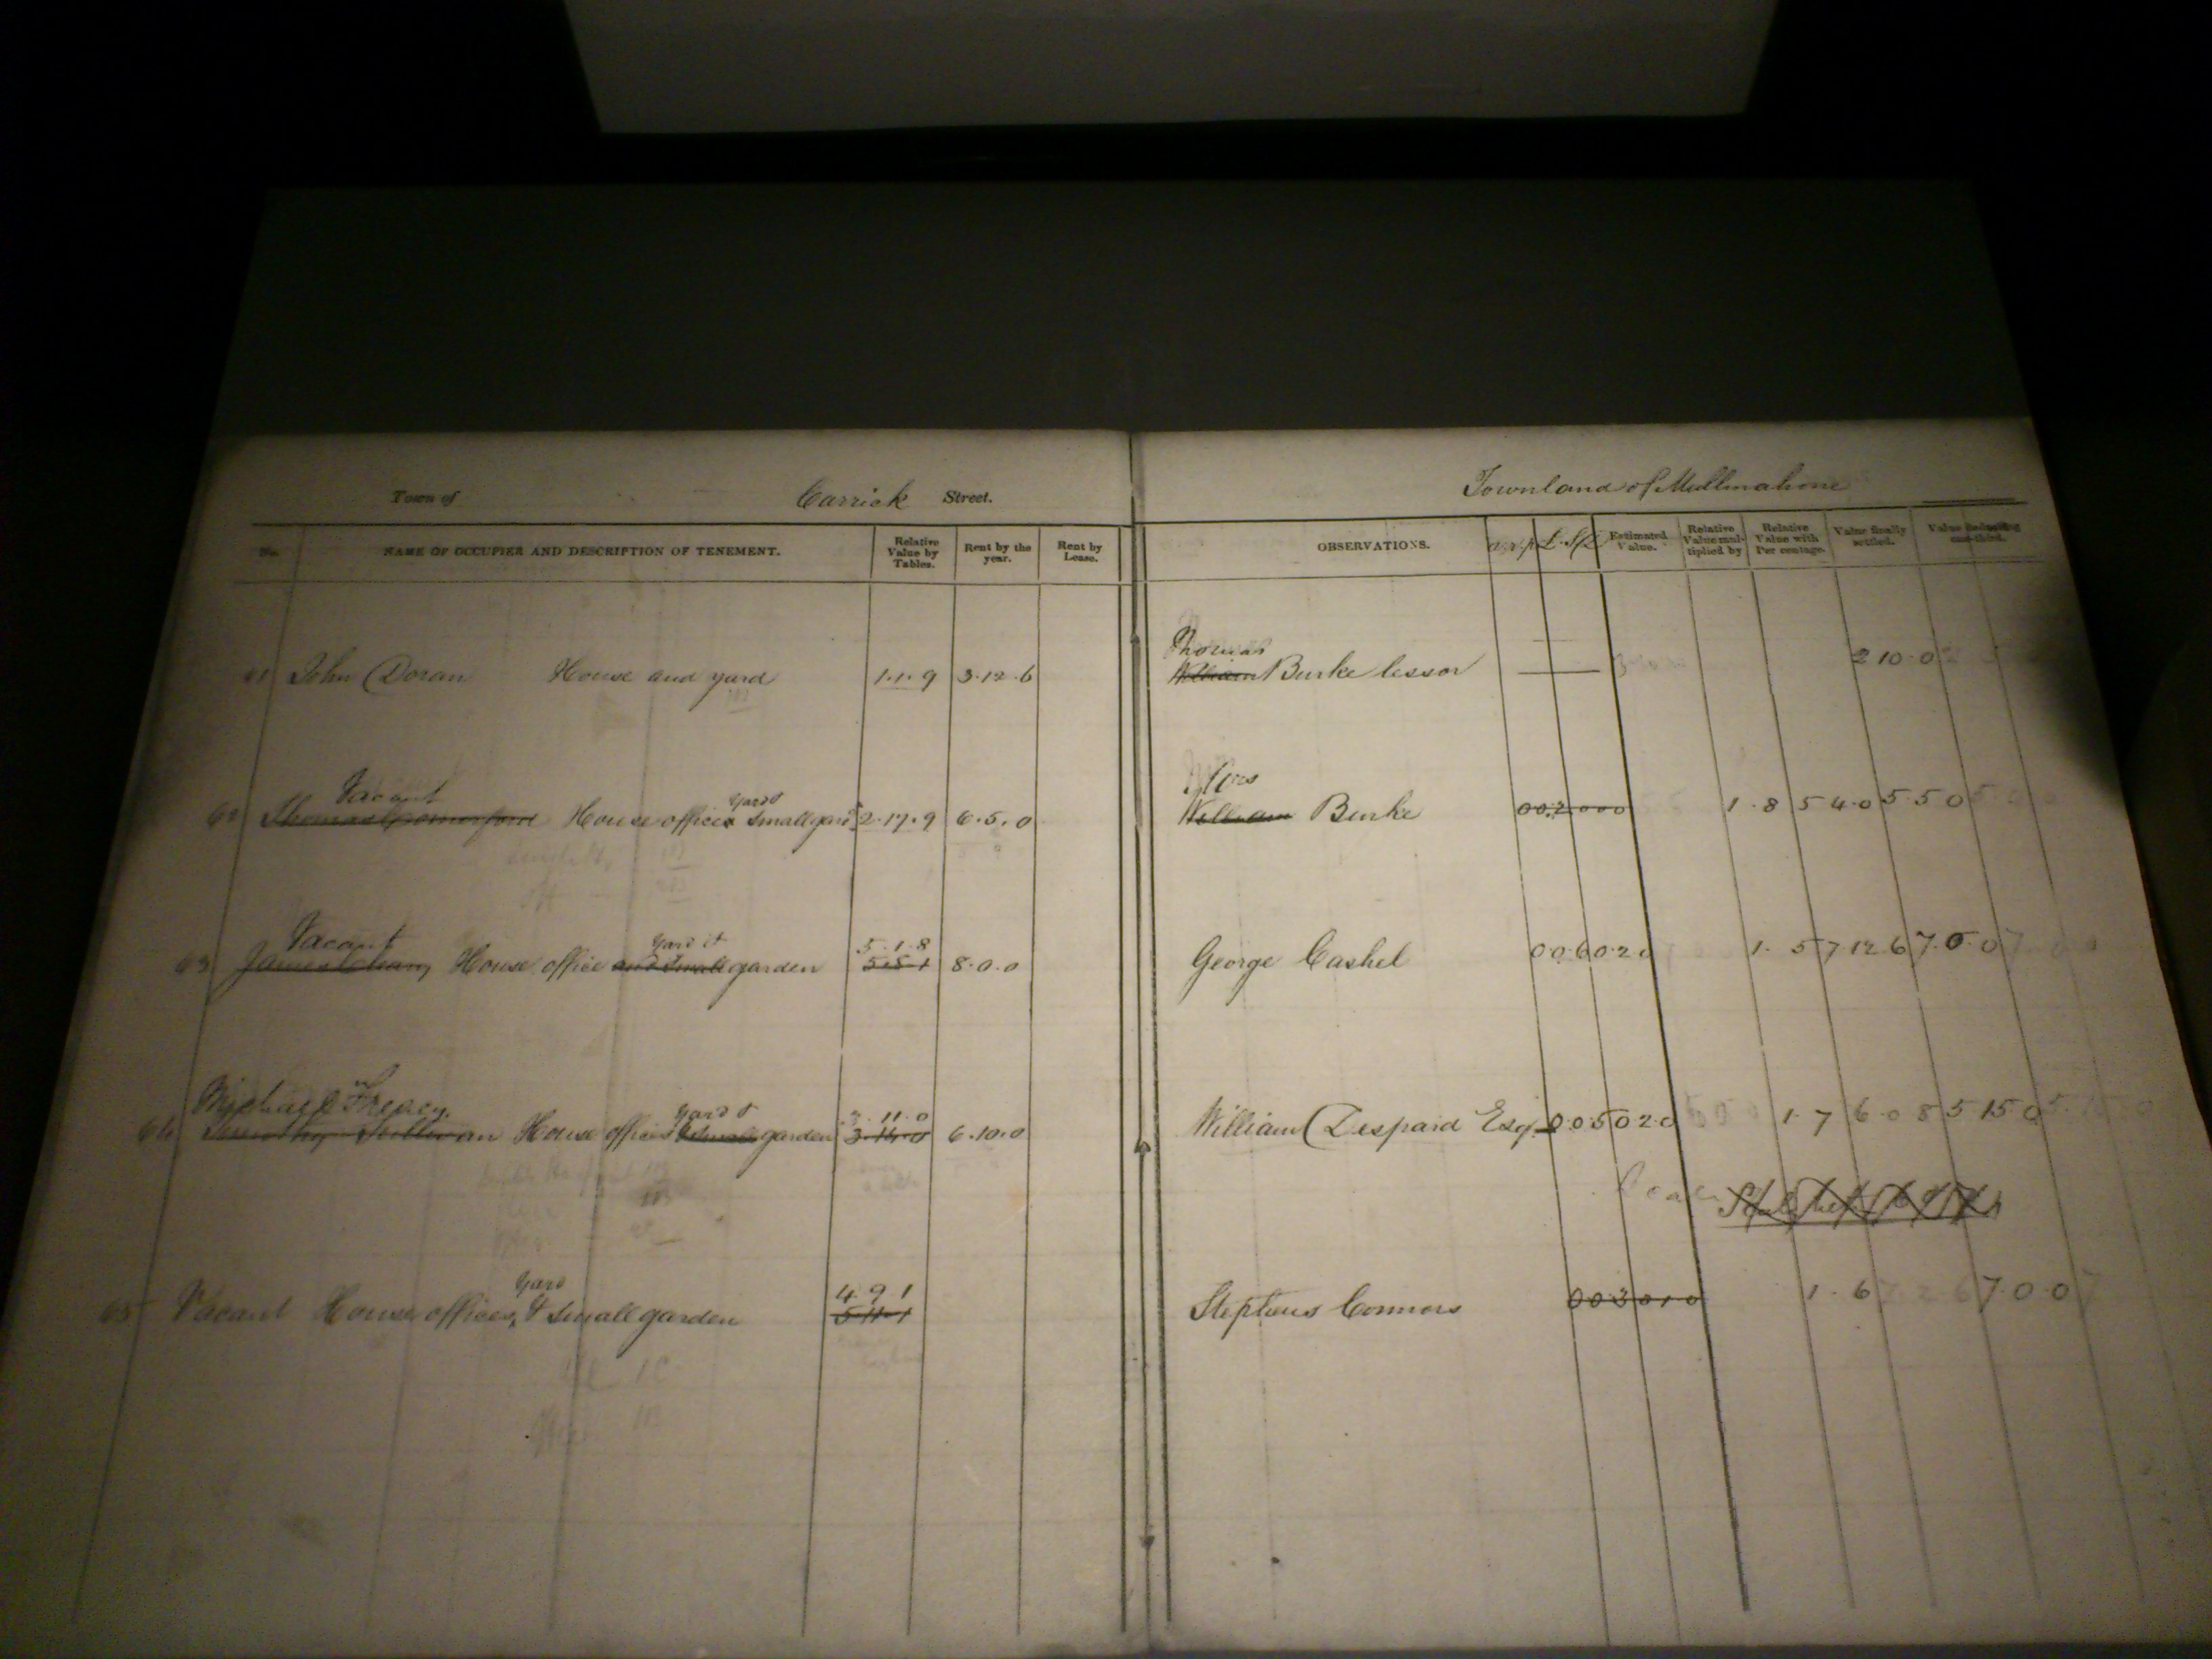 Town of Carrick Street.
Townland of Mullinahone
No. NAME OF OCCUPIER AND DESCRIPTION OF TENEMENT. Relative Value by Tables. Rent by the year. Rent by Lease.
OBSERVATIONS. a.r.p £.S.D Estimated Value. Relative Value multiplied by Relative Value with Per centage. Value finally settled. Value deducting one-third.
Thomas
61 John Doran House and yard 1.1.9 3.12.6 William Burke lessor 2 10.0
Vacant yard &
62 Thomas Comerford House offices small gard 2.17.9 6.5.0
Burke 0 0.2 0 0 0 1.8 5 4.0 5 5 0
Vacant yard & 5.1.8
63 House office and small garden 5.5.1 8.0.0 George Cashel 0 0.6 0.2 0 1.5 7 12 6 7.0.0
Michael Treacy yard & 3.11.0
64 Timothy Sullivan House offices & small garden 6.10.0 William Despard Esq. 0.0.5 0 2.0 1.7 6.0 8 5 15 0
yard 4 9 1
65 Vacant House offices, & small garden 5.11.1 Stephens Connors 0 0 3 0 1 0 1.6 7.0.0